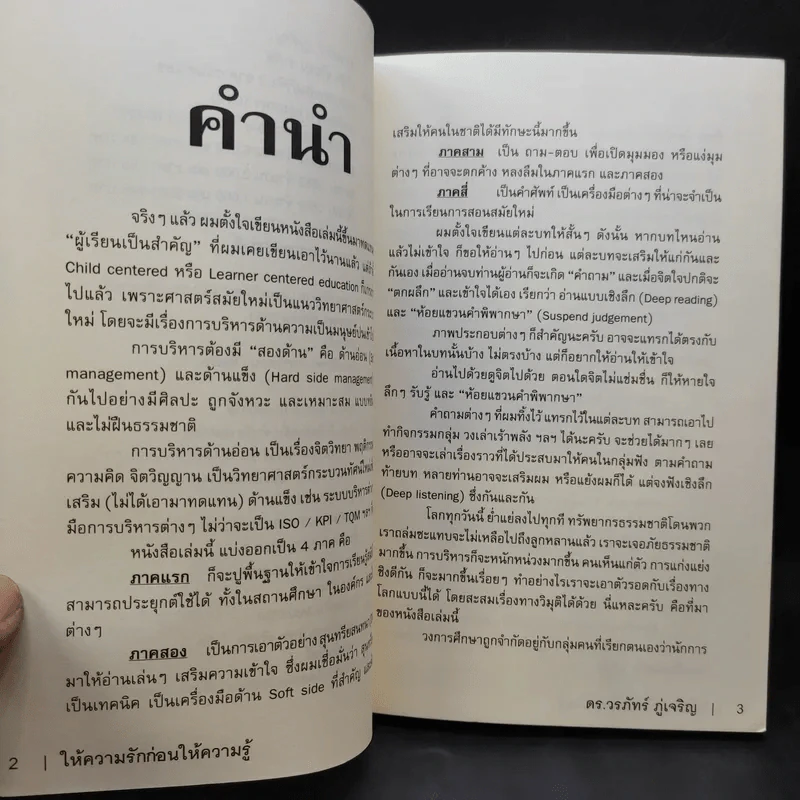 คำนำ
จริงๆ แล้ว ผมตั้งใจเขียนหนังสือเล่มนี้ขึ้นมา
“ผู้เรียนเป็นสำคัญ” ที่ผมเคยเขียนเอาไว้นานแล้ว
Child centered หรือ Learner centered education
ไปแล้ว เพราะศาสตร์สมัยใหม่เป็นแนววิทยาศาสตร์
ใหม่ โดยจะมีเรื่องการบริหารด้านความเป็นมนุษย์
การบริหารต้องมี “สองด้าน” คือ ด้านอ่อน
management) และด้านแข็ง (Hard side management
กันไปอย่างมีศิลปะ ถูกจังหวะ และเหมาะสม
และไม่ฝืนธรรมชาติ
การบริหารด้านอ่อน เป็นเรื่องจิตวิทยา
ความคิด จิตวิญญาน เป็นวิทยาศาสตร์กระบวนทัศน์
เสริม (ไม่ได้เอามาทดแทน) ด้านแข็ง เช่น ระบบบริหาร
มือการบริหารต่างๆ ไม่ว่าจะเป็น ISO / KPI / TQM ฯลฯ
หนังสือเล่มนี้ แบ่งออกเป็น 4 ภาค คือ
ภาคแรก ก็จะปูพื้นฐานให้เข้าใจการเรียนรู้
สามารถประยุกต์ใช้ได้ ทั้งในสถานศึกษา ในองค์กร
ต่างๆ
ภาคสอง เป็นการเอาตัวอย่าง สุนทรียสนทนา
มาให้อ่านเล่นๆ เสริมความเข้าใจ ซึ่งผมเชื่อมั่นว่า
เป็นเทคนิค เป็นเครื่องมือด้าน Soft side ที่สำคัญ
2 | ให้ความรักก่อนให้ความรู้
เสริมให้คนในชาติได้มีทักษะนี้มากขึ้น
ภาคสาม เป็น ถาม-ตอบ เพื่อเปิดมุมมอง หรือแง่มุม
ต่างๆ ที่อาจจะตกค้าง หลงลืมในภาคแรก และภาคสอง
ภาคสี่ เป็นคำศัพท์ เป็นเครื่องมือต่างๆ ที่น่าจะจำเป็น
ในการเรียนการสอนสมัยใหม่
ผมตั้งใจเขียนแต่ละบทให้สั้นๆ ดังนั้น หากบทไหนอ่าน
แล้วไม่เข้าใจ ก็ขอให้อ่านๆ ไปก่อน แต่ละบทจะเสริมให้แก่กันและ
กันเอง เมื่ออ่านจบท่านผู้อ่านก็จะเกิด “คำถาม” และเมื่อจิตใจปกติจะ
“ตกผลึก” และเข้าใจได้เอง เรียกว่า อ่านแบบเชิงลึก (Deep reading)
และ “ห้อยแขวนคำพิพากษา” (Suspend judgement)
ภาพประกอบต่างๆ ก็สำคัญนะครับ อาจจะแทรกได้ตรงกับ
เนื้อหาในบทนั้นบ้าง ไม่ตรงบ้าง แต่ก็อยากให้อ่านให้เข้าใจ
อ่านไปด้วยดูจิตไปด้วย ตอนใดจิตไม่แช่มชื่น ก็ให้หายใจ
ลึกๆ รับรู้ และ “ห้อยแขวนคำพิพากษา”
คำถามต่างๆ ที่ผมทิ้งไว้ แทรกไว้ในแต่ละบท สามารถเอาไป
ทำกิจกรรมกลุ่ม วงเล่าเร้าพลัง ฯลฯ ได้นะครับ จะช่วยได้มากๆ เลย
หรืออาจจะเล่าเรื่องราวที่ได้ประสบมาให้คนในกลุ่มฟัง ตามคำถาม
ท้ายบท หลายท่านอาจจะเสริมผม หรือแย้งผมก็ได้ แต่จงฟังเชิงลึก
(Deep listening) ซึ่งกันและกัน
โลกทุกวันนี้ ย่ำแย่ลงไปทุกที ทรัพยากรธรรมชาติโดนพวก
เราถล่มซะแทบจะไม่เหลือไปถึงลูกหลานแล้ว เราจะเจอภัยธรรมชาติ
มากขึ้น การบริหารก็จะหนักหน่วงมากขึ้น คนเห็นแก่ตัว การแก่งแย่ง
ชิงดีกัน ก็จะมากขึ้นเรื่อยๆ ทำอย่างไรเราจะเอาตัวรอดกับเรื่องทาง
โลกแบบนี้ได้ โดยสะสมเรื่องทางวิมุติได้ด้วย นี่แหละครับ คือที่มา
ของหนังสือเล่มนี้
วงการศึกษาถูกจำกัดอยู่กับกลุ่มคนที่เรียกตนเองว่านักการ
ดร.วรภัทร์ ภู่เจริญ | 3